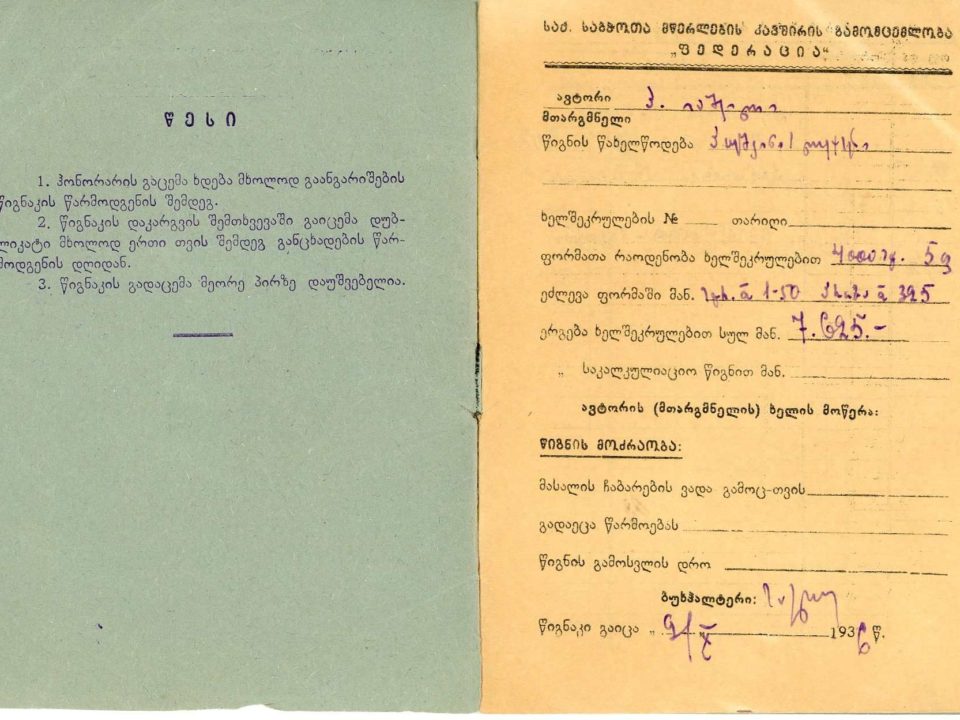 წესი
1. ჰონორარის გაცემა ხდება მხოლოდ გაანგარიშების
წიგნაკის წარმოდგენის შემდეგ.
2. წიგნაკის დაკარგვის შემთხვევაში გაიცემა დუბ-
ლიკატი მხოლოდ ერთი თვის შემდეგ განცხადების წარ-
მოდგენის დღიდან.
3. წიგნაკის გადაცემა მეორე პირზე დაუშვებელია.
საქ. საბჭოთა მწერლების კავშირის გამომცემლობა
„ფედერაცია“
ავტორი პ. იაშვილი
მთარგმნელი
წიგნის წახელწოდება პუშკინი
ხელშეკრულების № თარიღი
ფორმათა რაოდენობა ხელშეკრულებით
ეძლევა ფორმაში მან. 1-50 325
ერგება ხელშეკრულებით სულ მან. 7.625.-
„ საკალკულიაციო წიგნით მან.
ავტორის (მთარგმნელის) ხელის მოწერა:
წიგნის მოძრაობა:
მასალის ჩაბარების ვადა გამოც-თვის
გადაეცა წარმოებას
წიგნის გამოსვლის დრო
ბუხჰალტერი:
წიგნაკი გაიცა „ 9/X 1936 წ.